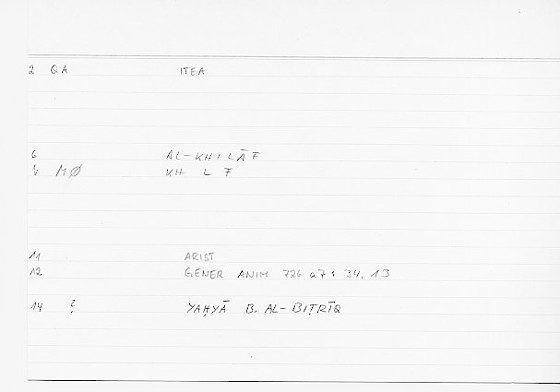 2 QA ITEA
6 AL-KHILĀF
4 MØ KH L F
11 ARIST
12 GENER ANIM 726 a7 : 34, 13
14 ? YAḤYĀ B. AL-BIṬRĪQ